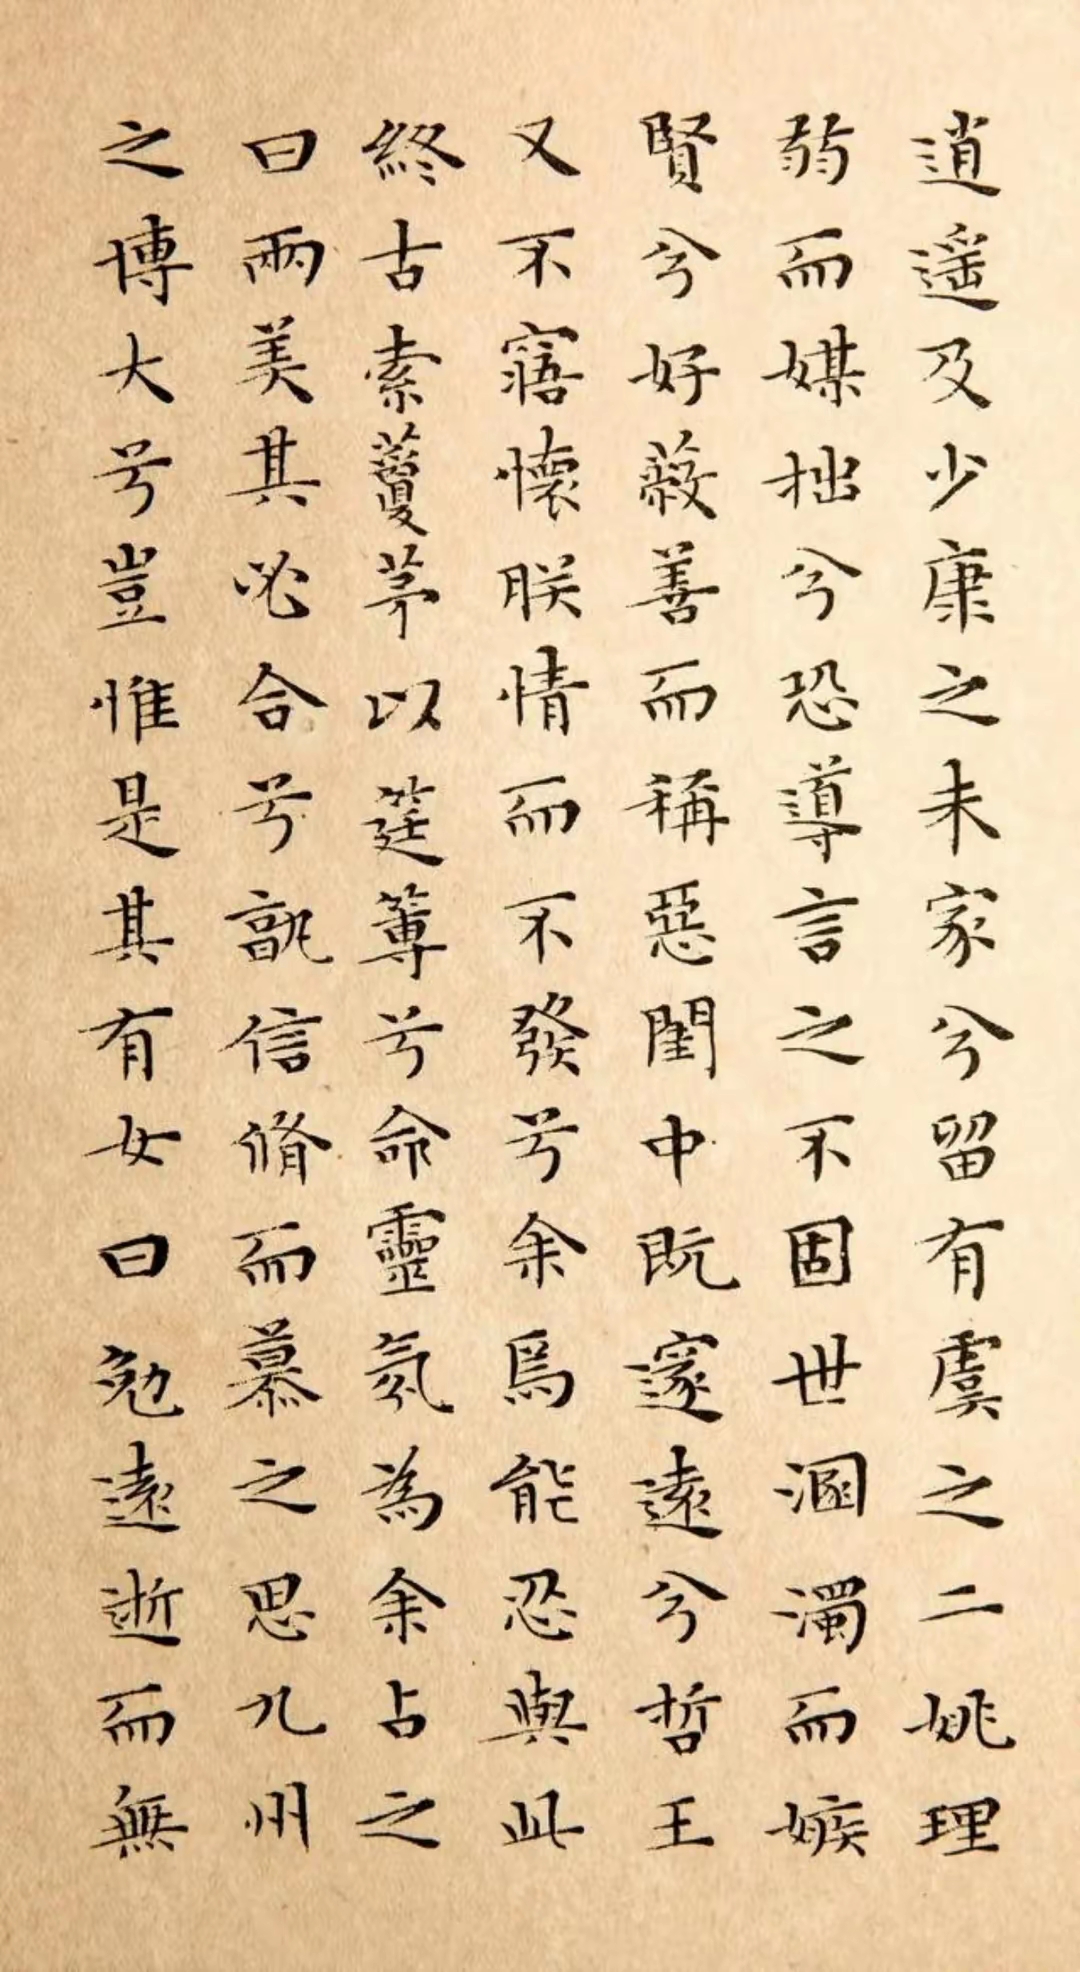 逍遥及少康之未家兮留有虞之二姚理
弱而媒拙兮恐導言之不固世溷濁而嫉
賢兮好蔽善而稱惡閨中既邃遠兮哲王
又不寤懷朕情而不發兮余焉能忍與此
終古索藑茅以筳篿兮命靈氛為余占之
曰兩美其必合兮孰信脩而慕之思九州
之博大兮豈惟是其有女曰勉遠逝而無